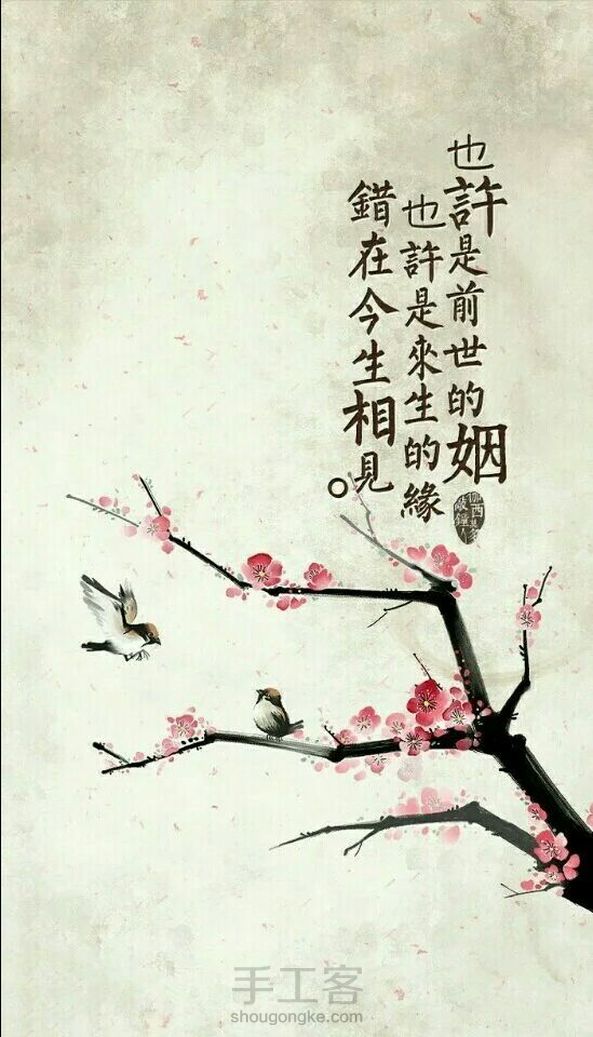 也許是前世的姻
也許是來生的緣
錯在今生相見。
手工客
shougongke.com